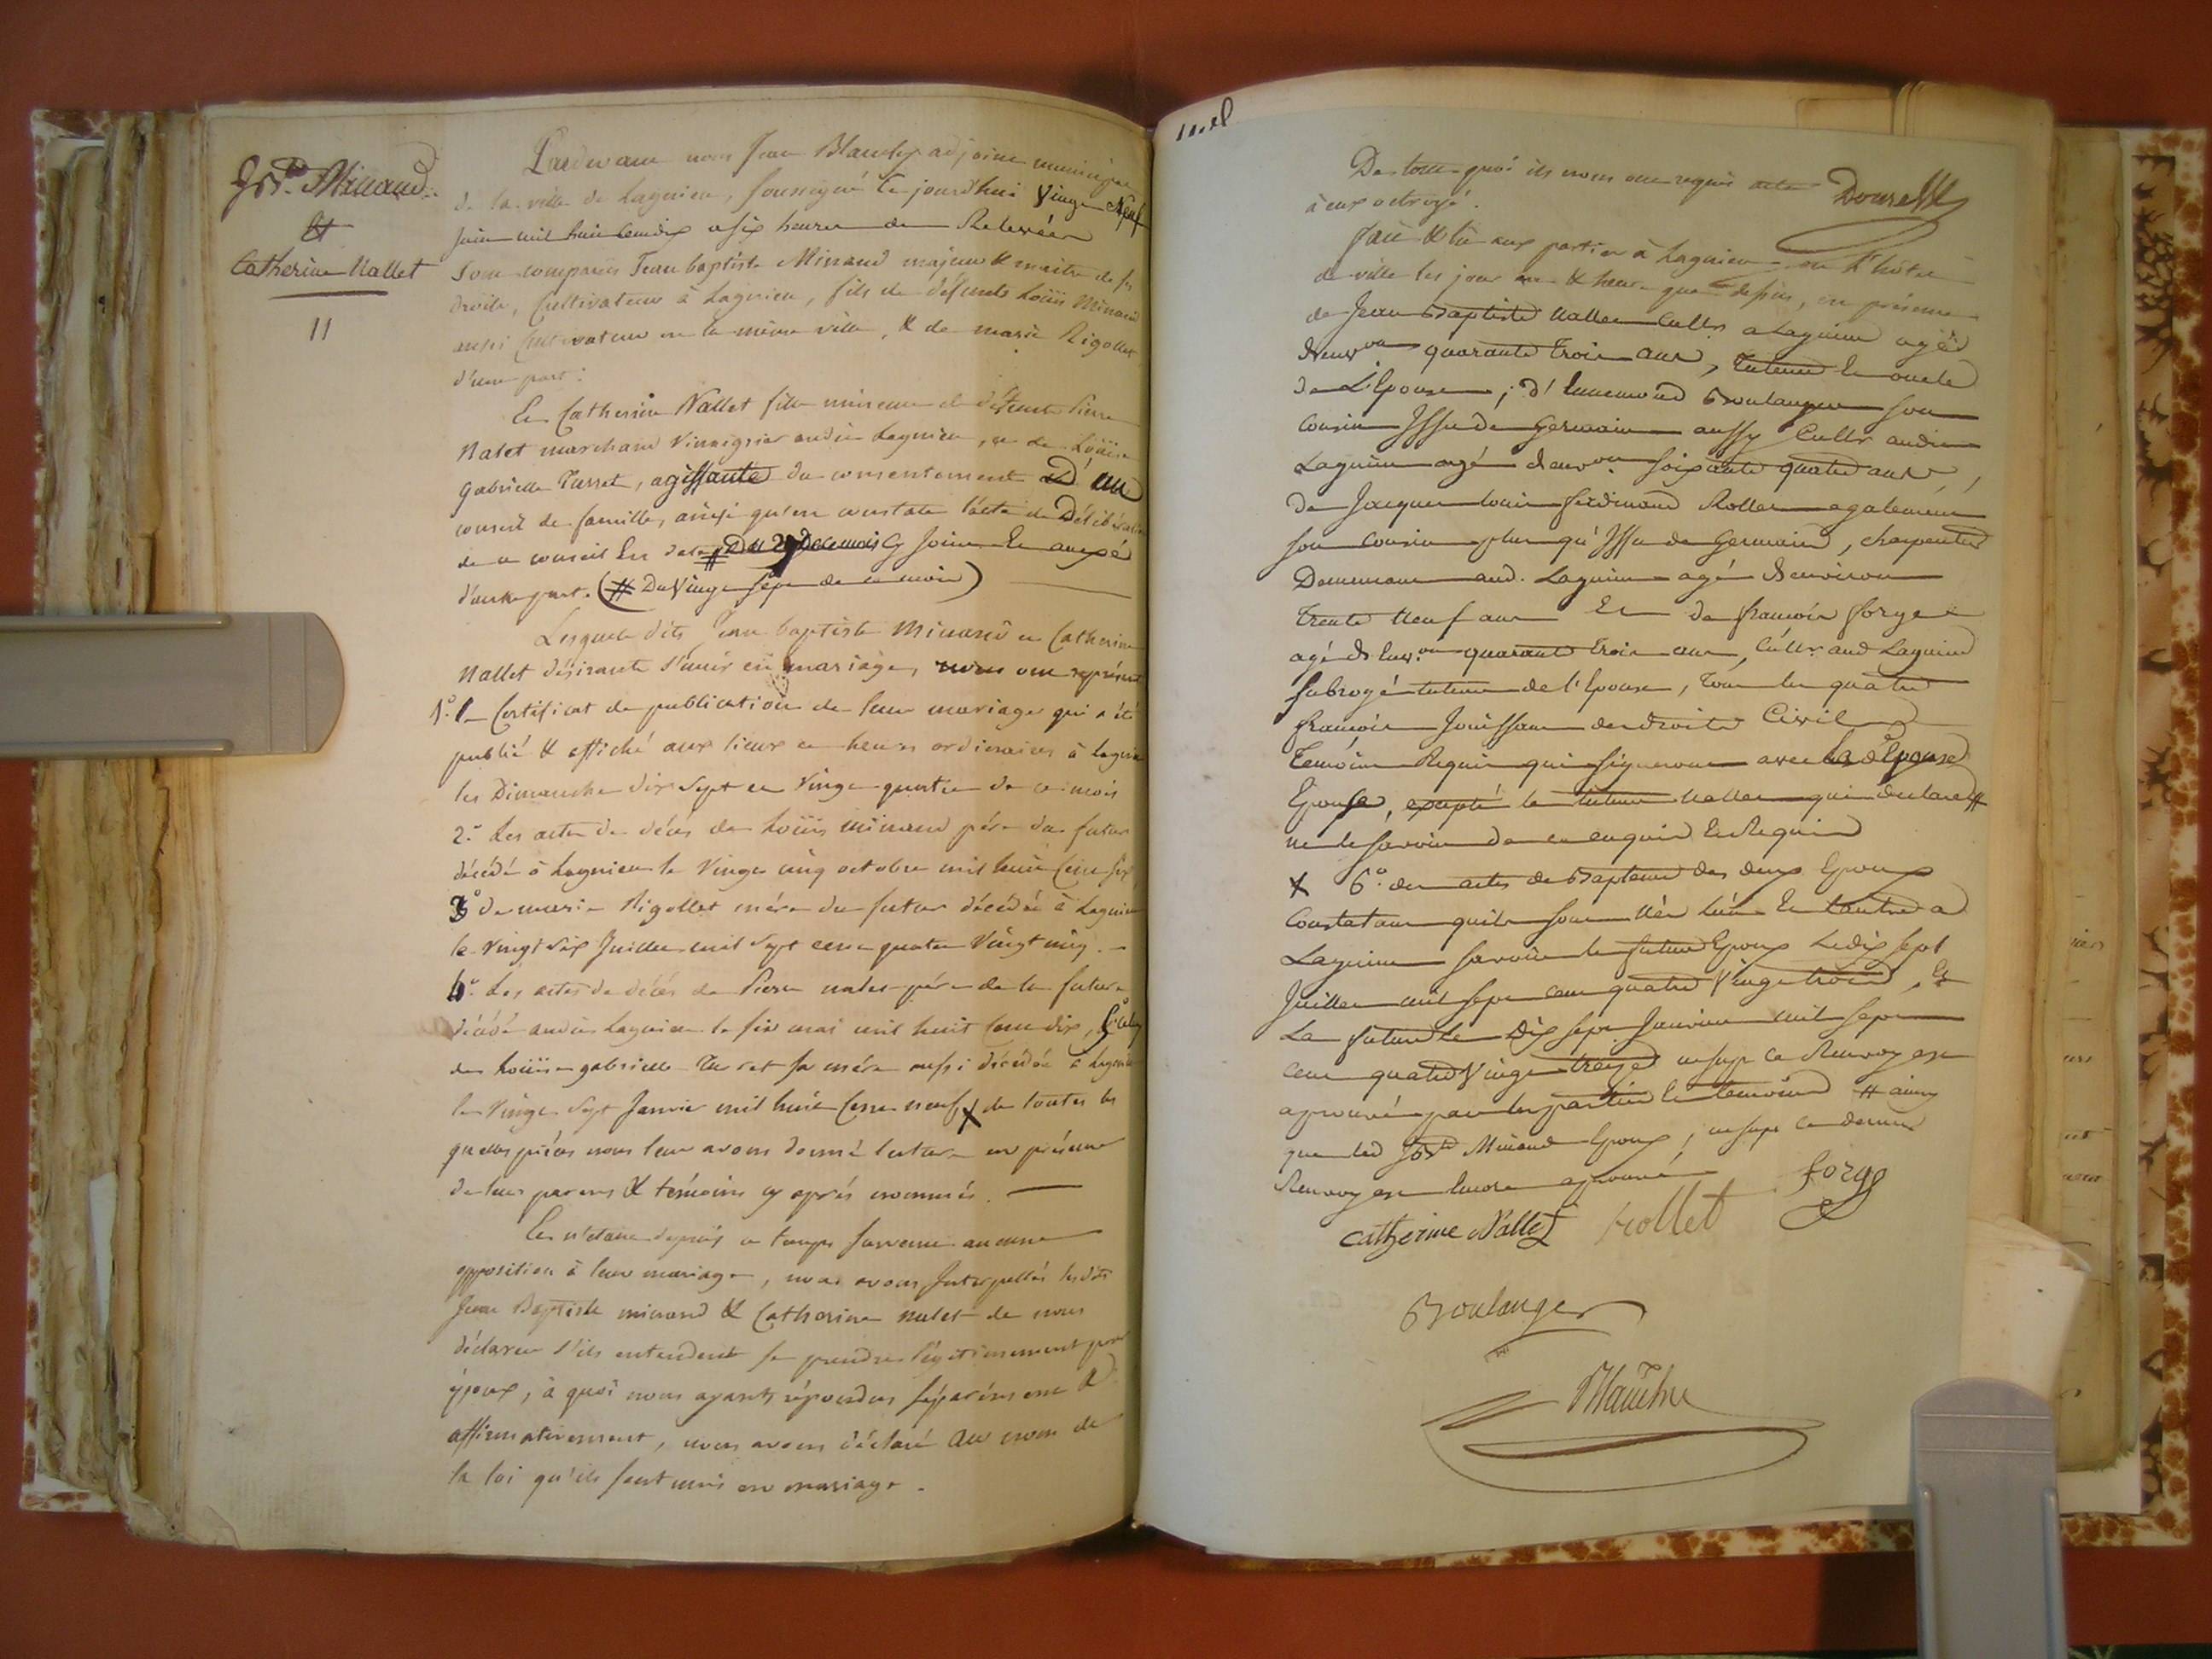 Jn Bte Minand
&
Catherine Nallet
11
Pardevant nous Jean Blanchy adjoint municipal
de la ville de Lagnieu, soussigné Ce jourdhui Vingt Neuf
juin mil huit cent dix a six heures de Relevée
Sont comparûs Jean baptiste Minand majeur & maître de ses
droits, Cultivateur à Lagnieu, fils de défunts Loüis Minand
aussi Cultivateur en la même ville, & de marie Rigollet
d'une part:
Et Catherine Nallet fille mineure de défunts Pierre
Nalet marchand Vinaigrier audit Lagnieu, et de Loüise
gabrielle Turret, agissante du consentement D'un
conseil de famille, ainsi qu'en constate l'acte de Délibération
de ce conseil En date # Du 27 De ce mois Cy Joint Et anexé
d'autre part. (# Du Vingt sept de ce mois)
Lesquels dits Jean baptiste Minand et Catherine
Nallet désirants s'unir en mariage, nous ont représenté
1.° le Certificat de publication de leur mariage qui a été
publié & affiché aux lieux et heures ordinaires à Lagnieu
les Dimanche dix sept et Vingt quatre de ce mois
2.° Les actes de décés de Loüis minand pére du futur
décédé à Lagnieu le Vingt cinq octobre mil huit Cent six,
3° de marie Rigollet mére du futur décédée à Lagnieu
le Vingt six Juillet mil sept cent quatre Vingt cinq. -
4.° Les actes de décés de Pierre nalet pére de la future
décédé audit Lagnieu le six mai mil huit Cent dix, 5° celui
de Loüise gabrielle Turret sa mére aussi décédée à Lagnieu
le Vingt sept Janvier mil huit Cent neuf, X de toutes les
quelles piéces nous leur avons donné lecture en présence
de leurs parens & témoins cy aprés nommés.
Et n'étant depuis ce temps survenu aucune
opposition à leur mariage, nous avons Interpellés lesdits
Jean Baptiste minand & Catherine nalet de nous
déclarer s'ils entendent se prendre légitimement pour
époux, à quoi nous ayants répondus séparément &
affirmativement, nous avons déclaré au nom de
la loi qu'ils sont unis en mariage.
De tout quoi ils nous ont requis acte
à eux octroyé.
Fait & lû aux parties à Lagnieu en l'hôtel
de ville les jour an & heure que dessus, en présence
de Jean Baptiste Nallet Cultr a Lagnieu agé
d'envon quarante trois ans, tuteur Et oncle
de L'Epouse; d' Ennemond Boulanger son
Cousin Issu de Germain aussy Cultr audit
Lagnieu agé d'envon soixante quatre ans,
de Jacques louis ferdinand Rollet egalement
son Cousin plus qu'Issu de Germain, charpentier
Demeurant aud. Lagnieu agé d'environ
trente Neuf ans Et de françois forge
agé d'env.on quarante trois ans, Cultr aud Lagnieu
subrogé tuteur de l'Epouse, tous les quatre
françois Jouissant des droits Civils
Temoins Requis qui signeront avec
Epouse, excepté le tuteur Nallet qui declare #
ne le savoir de ce enquis Et Requis
X 6.° des actes de Baptême des deux Epoux
Constatant quils sont Nés lun Et lautre a
Lagnieu savoir le futur Epoux Le dix sept
Juillet mil sept cent quatre Vingt trois, Et
La future le Dix sept Janvier mil sept
Cent quatre Vingt treize ce Renvoy est
aprouvé par les parties Et temoins # ainsy
que led Jn Bte Minand Epoux, ce dernier
Renvoy est Encore aprouvé
forge
Catherine Nallet rollet
Boulanger